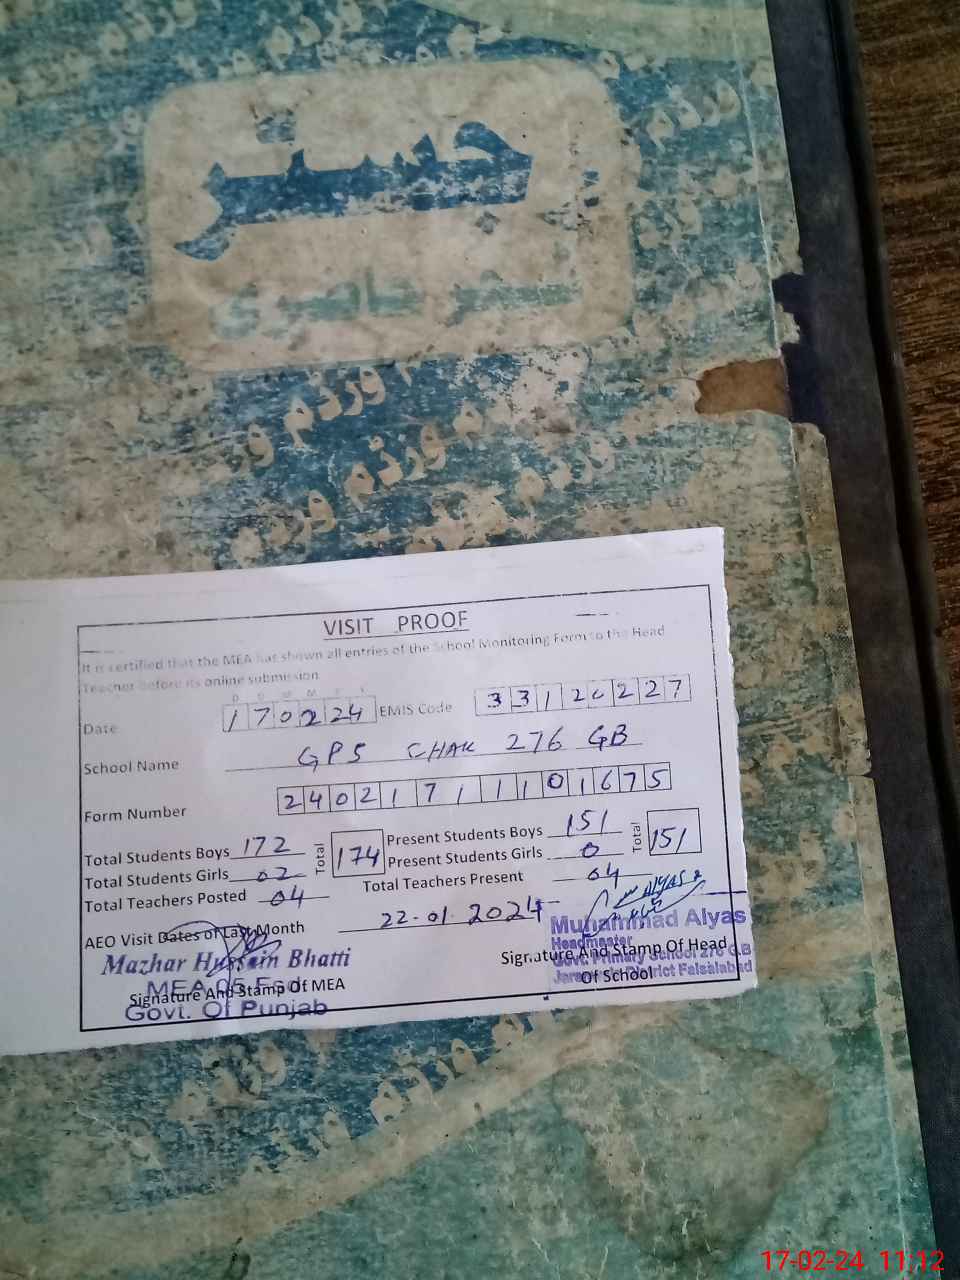 رجسٹر
حاضری
ورڈم ورڈم
VISIT PROOF
It is certified that the MEA has shown all entries of the School Monitoring Form to the Head
Teacher before its online submission.
D D M M Y Y
Date 170224 EMIS Code 33120227
School Name GPS CHAK 276 GB
Form Number 240217111101675
Total Students Boys 172 Total 174 Present Students Boys 151 Total 151
Total Students Girls 02 Present Students Girls 0
Total Teachers Posted 04 Total Teachers Present 04
AEO Visit Dates of Last Month 22-01-2024
Mazhar Hussain Bhatti
MEA
Signature And Stamp Of MEA
Govt. Of Punjab
Muhammad Alyas
Headmaster
Govt. Primary School 276 G.B
District Faisalabad
Signature And Stamp Of Head
Of School
17-02-24 11:12